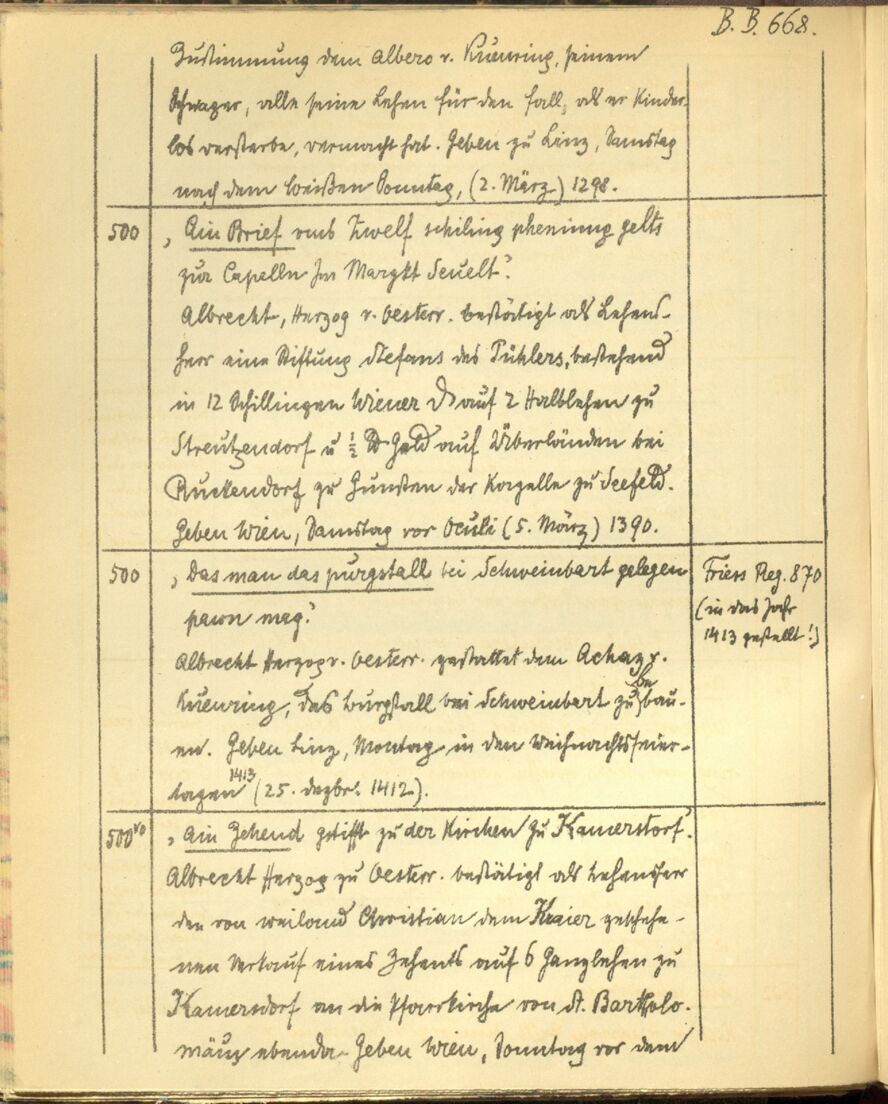 B. B. 668.
Zustimmung dem Albero v. Kuenring, seinem
Schwager, alle seine Lehen für den Fall, als er kinder-
los versterbe, vermacht hat. Geben zu Linz, Samstag
nach dem weißen Sonntag, (2. März) 1298.
500
„Ain Brief vmb Zwelf schiling phening gelts
zur Capelln Im Margkt Seuelt."
Albrecht, Herzog v. Oesterr. bestätigt als Lehens-
herr eine Stiftung Stefans des Pühlers, bestehend
in 12 Schillingen Wiener ₰ auf 2 Halblehen zu
Streutzendorf u ½ ℔ Geld auf Überländen bei
Ruckendorf zu Gunsten der Kapelle zu Seefeld.
Geben Wien, Samstag vor Oculi (5. März) 1390.
500
„Das man das purgstall bei Schweinbart gelegen
pawn mag."
Albrecht Herzog v. Oesterr. gestattet dem Achaz v.
Kuenring, das Burgstall bei Schweinbart zu bebau-
en. Geben Linz, Montag in den Weihnachtsfeier-
tagen 1413 (25. Dezbr. 1412).
Friess Reg. 870
(in das Jahr
1413 gestellt!)
500vo
„Ain Zehend gstifft zu der Kirchen zu Kamerstorf."
Albrecht Herzog zu Oesterr. bestätigt als Lehensherr
den von weiland Christian dem Kraier geschehe-
nen Verkauf eines Zehents auf 6 Ganzlehen zu
Kamersdorf an die Pfarrkirche von St. Bartholo-
mäus ebenda. Geben Wien, Sonntag vor dem